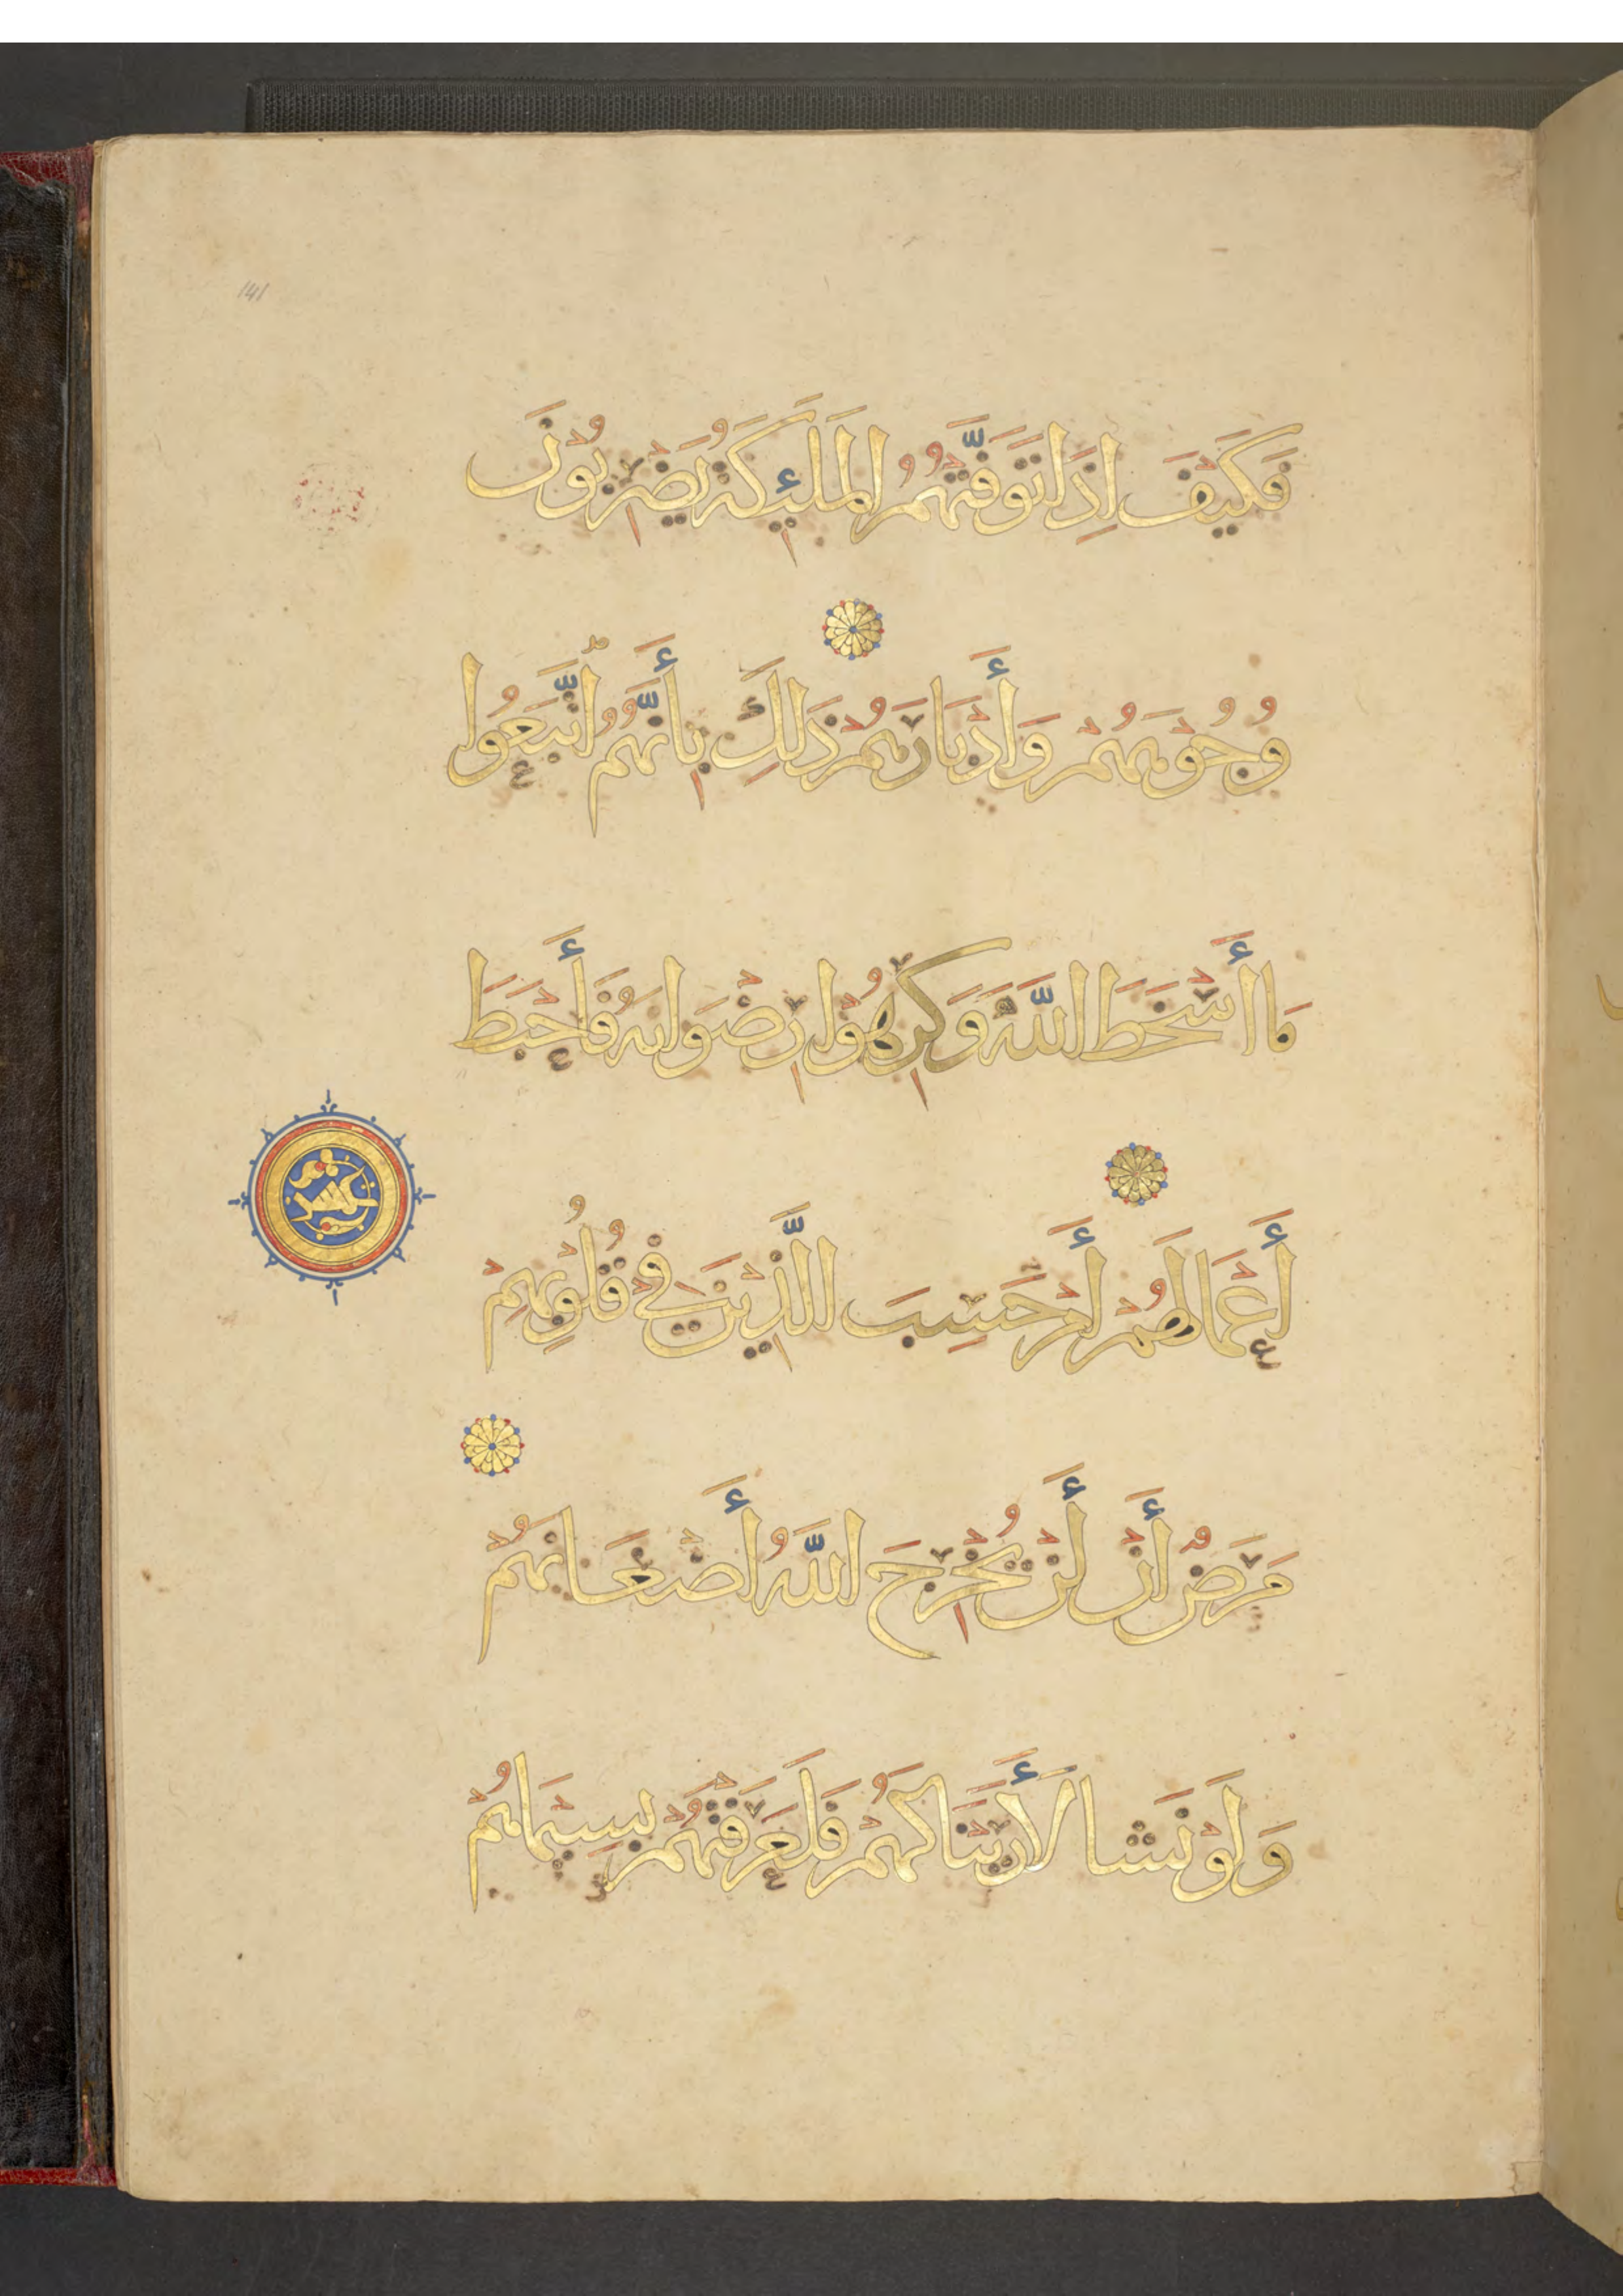 141
فَكَيْفَ اِذَا تَوَفَّتْهُمُ الْمَلَٰئِكَةُ يَضْرِبُونَ
وُجُوْهَهُمْ وَأَدْبَارَهُمْ ذَٰلِكَ بِأَنَّهُمُ اتَّبَعُوا
مَا أَسْخَطَ اللَّهَ وَكَرِهُوْا رِضْوَانَهُ فَأَحْبَطَ
أَعْمَالَهُمْ أَمْ حَسِبَ الَّذِيْنَ فِيْ قُلُوْبِهِمْ
عشر
مَرَضٌ أَنْ لَنْ يُخْرِجَ اللَّهُ أَضْغَانَهُمْ
وَلَوْ نَشَا لَأَرَيْنَاكَهُمْ فَلَعَرَفْتَهُمْ بِسِيْمَاهُمْ